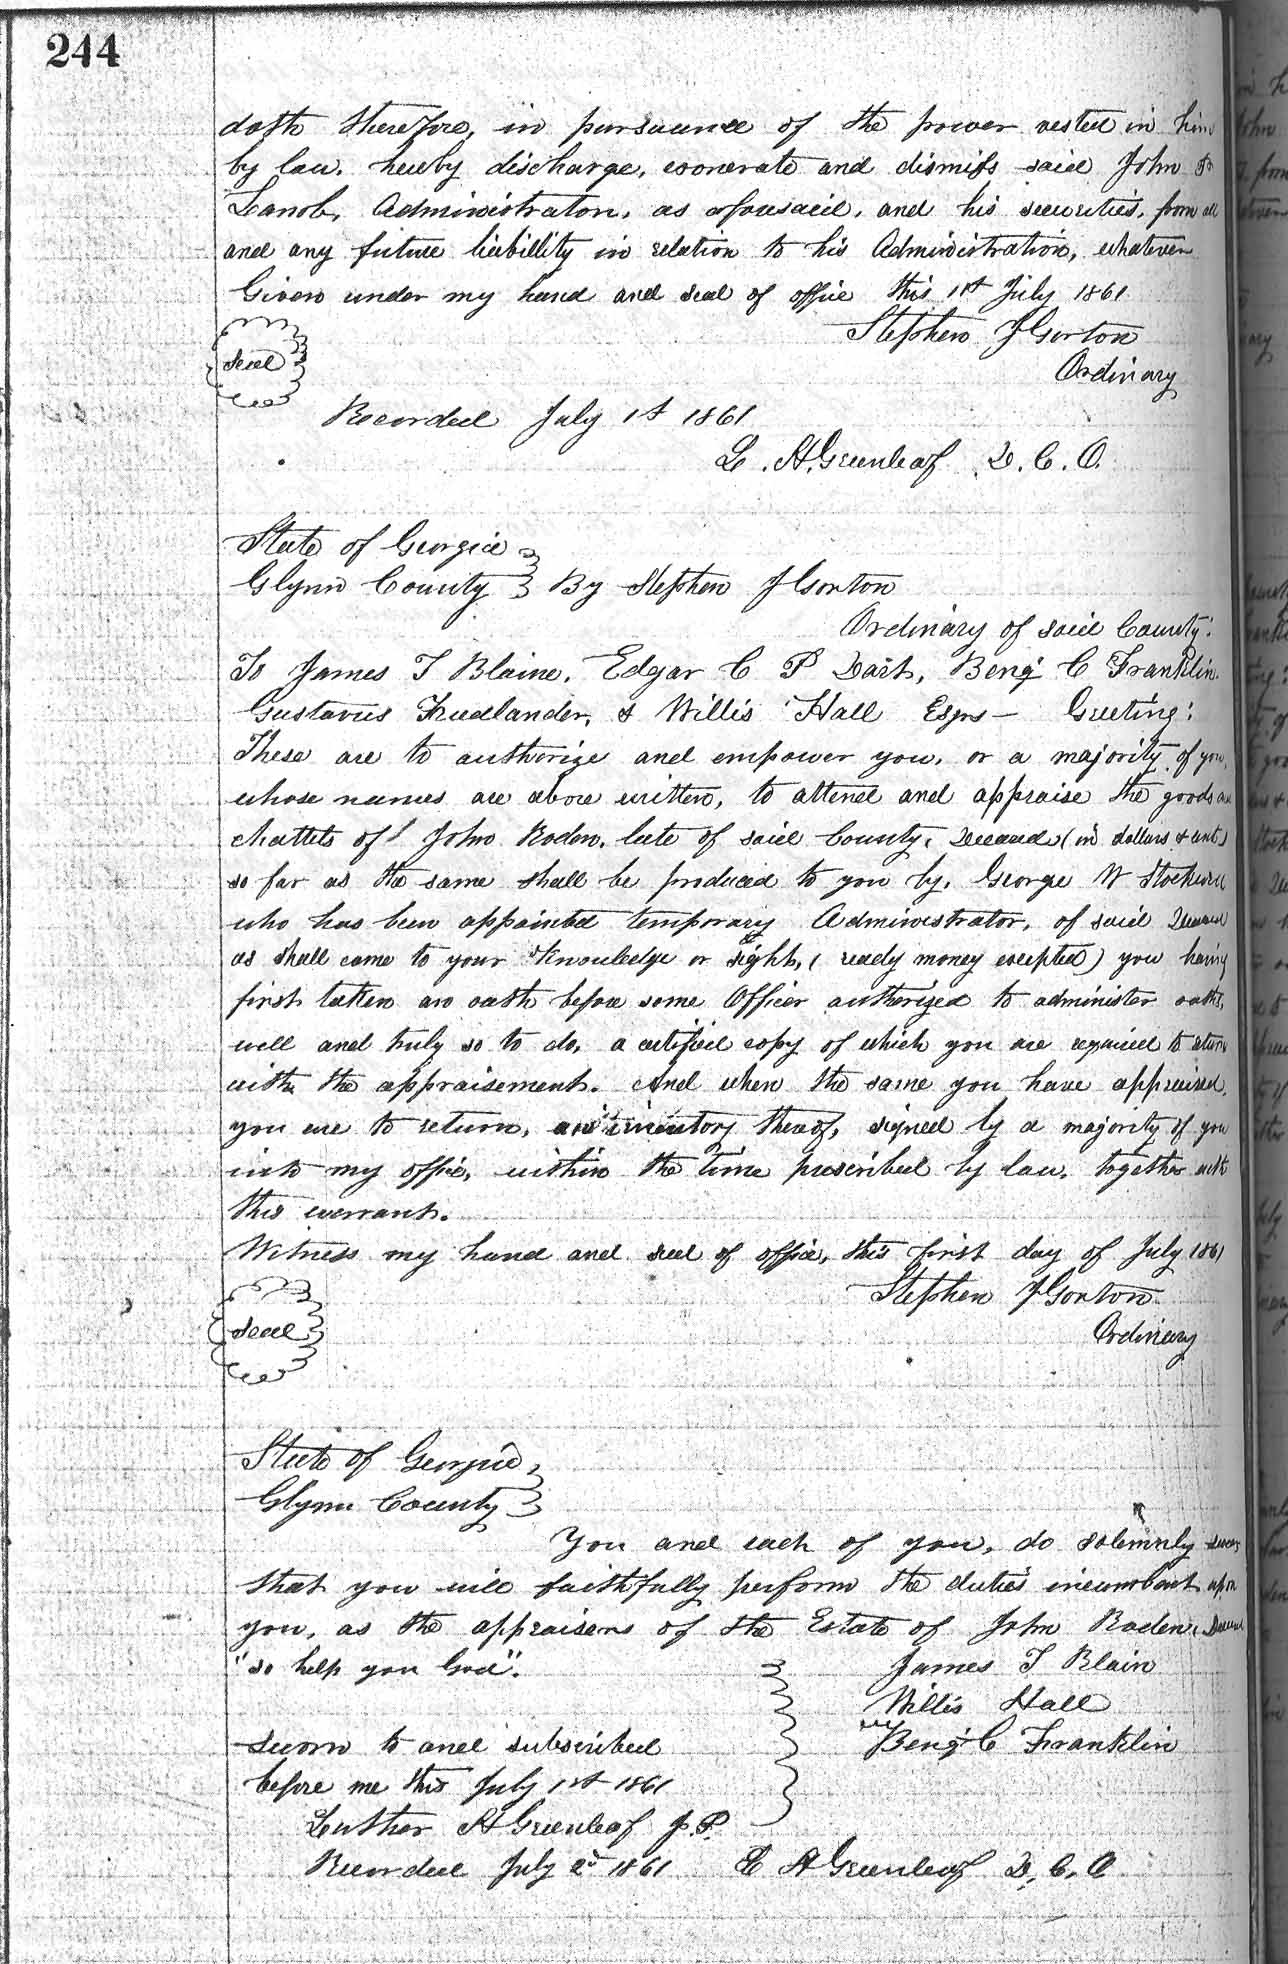 244
doth therefore, in pursuance of the power vested in him
by law, hereby discharge, exonerate and dismiss said John
Lamb, Administrator, as aforesaid, and his securities, from all
and any future liability in relation to his Administration, whatever
Given under my hand and seal of office this 1st July 1861
Stephen J Gorton
Seal
Ordinary
Recorded July 1st 1861
L. H. Greenleaf D. C. O.
State of Georgia
Glynn County } By Stephen J Gorton
Ordinary of said County:
To James T Blaine, Edgar C P Dart, Benj C Franklin
Gustavus Friedlander, & Willis Hall Esqrs — Greeting:
These are to authorize and empower you, or a majority of you,
whose names are above written, to attend and appraise the goods and
chattels of John Roden, late of said County, Deceased (in dollars & cents)
so far as the same shall be produced to you by, George W Stockwell
who has been appointed temporary Administrator, of said Deceased
as shall come to your knowledge or sight, (ready money excepted) you having
first taken an oath before some Officer authorized to administer oaths,
well and truly so to do, a certified copy of which you are required to return
with the appraisement. And when the same you have appraised,
you are to return, an inventory thereof, signed by a majority of you
into my office, within the time prescribed by law, together with
this warrant.
Witness my hand and seal of office, this first day of July 1861
Stephen J Gorton
Seal
Ordinary
State of Georgia
Glynn County }
You and each of you, do solemnly swear
that you will faithfully perform the duties incumbent upon
you, as the appraisers of the Estate of John Roden, Deceased
"so help you God".
James T Blain
Willis Hall
Benj C Franklin
Sworn to and subscribed
before me this July 1st 1861
Luther H Greenleaf J. P.
Recorded July 2d 1861 L H Greenleaf D. C. O